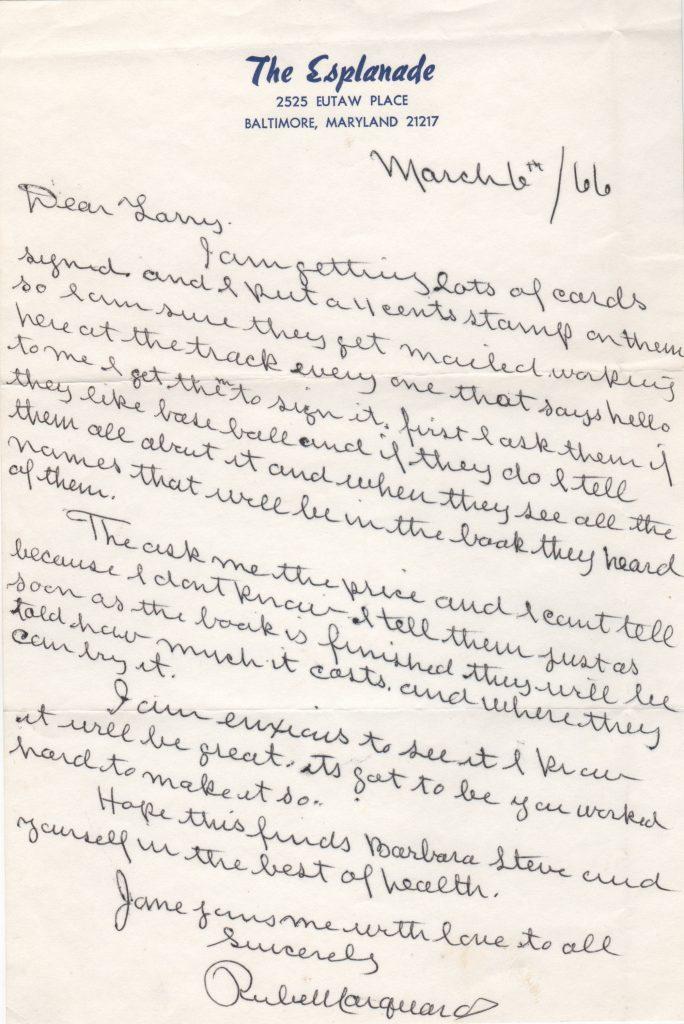 The Esplanade
2525 EUTAW PLACE
BALTIMORE, MARYLAND 21217
March 6th/66
Dear Larry.
I am getting lots of cards
signed. and I put a 4 cents stamp on them
so I am sure they get mailed working
here at the track every one that says hello
to me I get them to sign it. first I ask them if
they like base ball and if they do I tell
them all about it and when they see all the
names that will be in the book they heard
of them.
The ask me the price and I cant tell
because I dont know. I tell them just as
soon as the book is finished they will be
told how much it costs. and where they
can buy it.
I am enxious to see it I know
it will be great. its got to be you worked
hard to make it so..
Hope this finds Barbara Steve and
yourself in the best of health.
Jane joins me with love to all
Sincerely
Rube Marquard